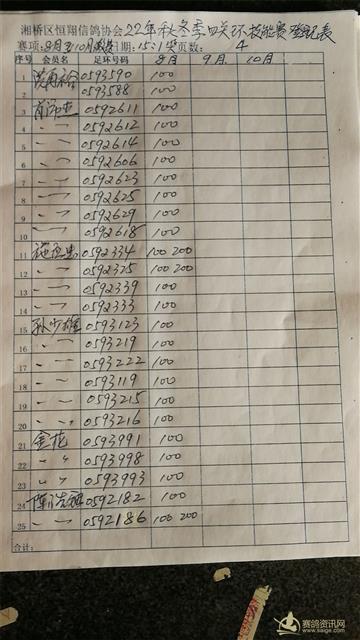 湘桥区恒翔信鸽协会22年秋冬季四关环技能赛登记表
赛项:8月至10月 日期:15:1 页数: 4
序号 会员名 足环号码 8月 9月 10月
1 0593590 100
2 0593588 100
3 0592611 100
4 〃 0592612 100
5 〃 0592614 100
6 〃 0592606 100
7 〃 0592623 100
8 〃 0592625 100
9 〃 0592629 100
10 〃 0592618 100
11 0592334 100 200
12 〃 0592325 100 200
13 〃 0592339 100
14 〃 0592333 100
15 孙少雄 0593123 100
16 〃 0593219 100
17 〃 0593222 100
18 〃 0593119 100
19 〃 0593215 100
20 〃 0593216 100
21 金花 0593991 100
22 〃 0593998 100
23 〃 0593993 100
24 0592182 100
25 〃 0592186 100 200
合计:
赛鸽资讯网
www.saige.com